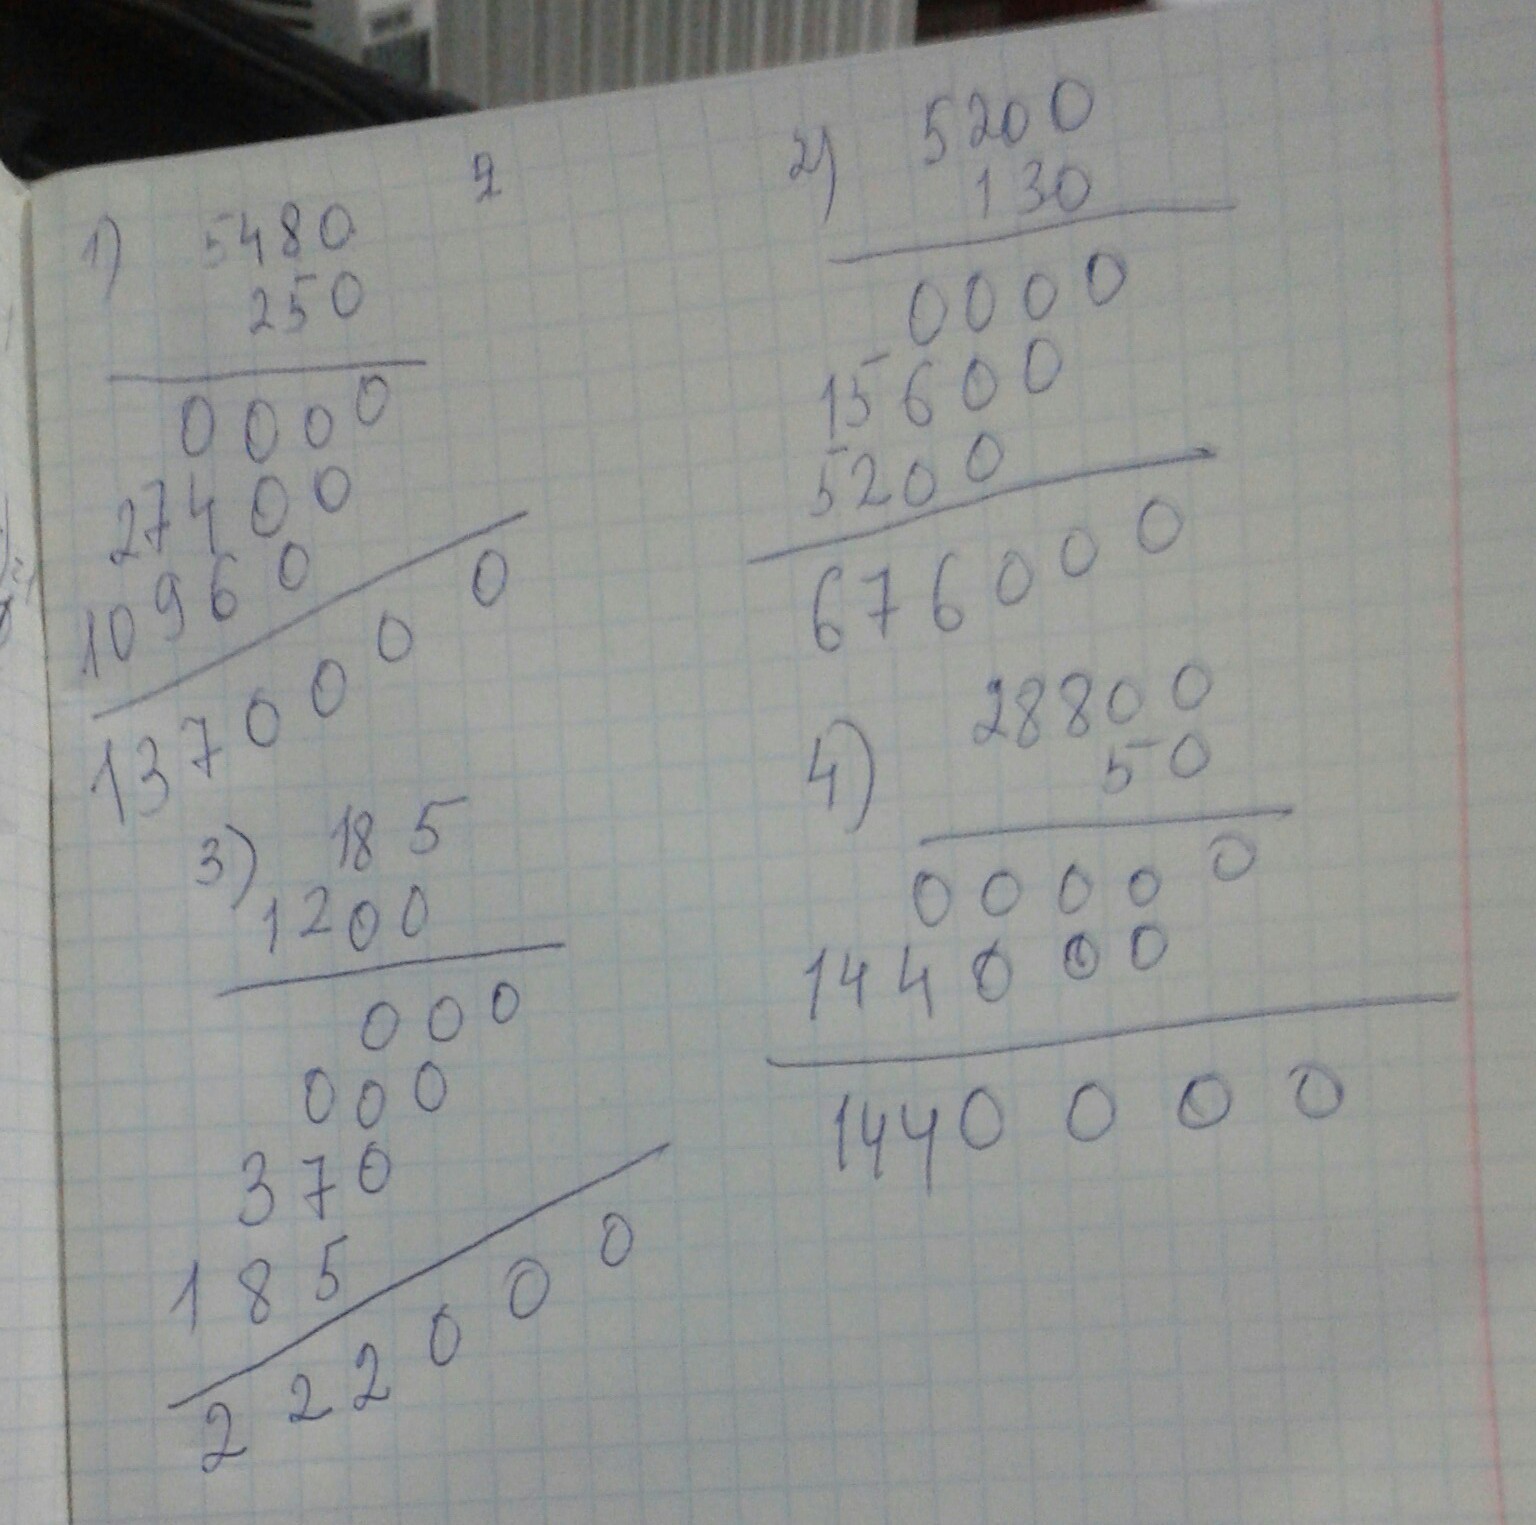 2
1) 5480
250
0000
27400
10960
1370000
2) 5200
130
0000
15600
5200
676000
3) 185
1200
000
000
370
185
222000
4) 28800
50
00000
144000
1440000